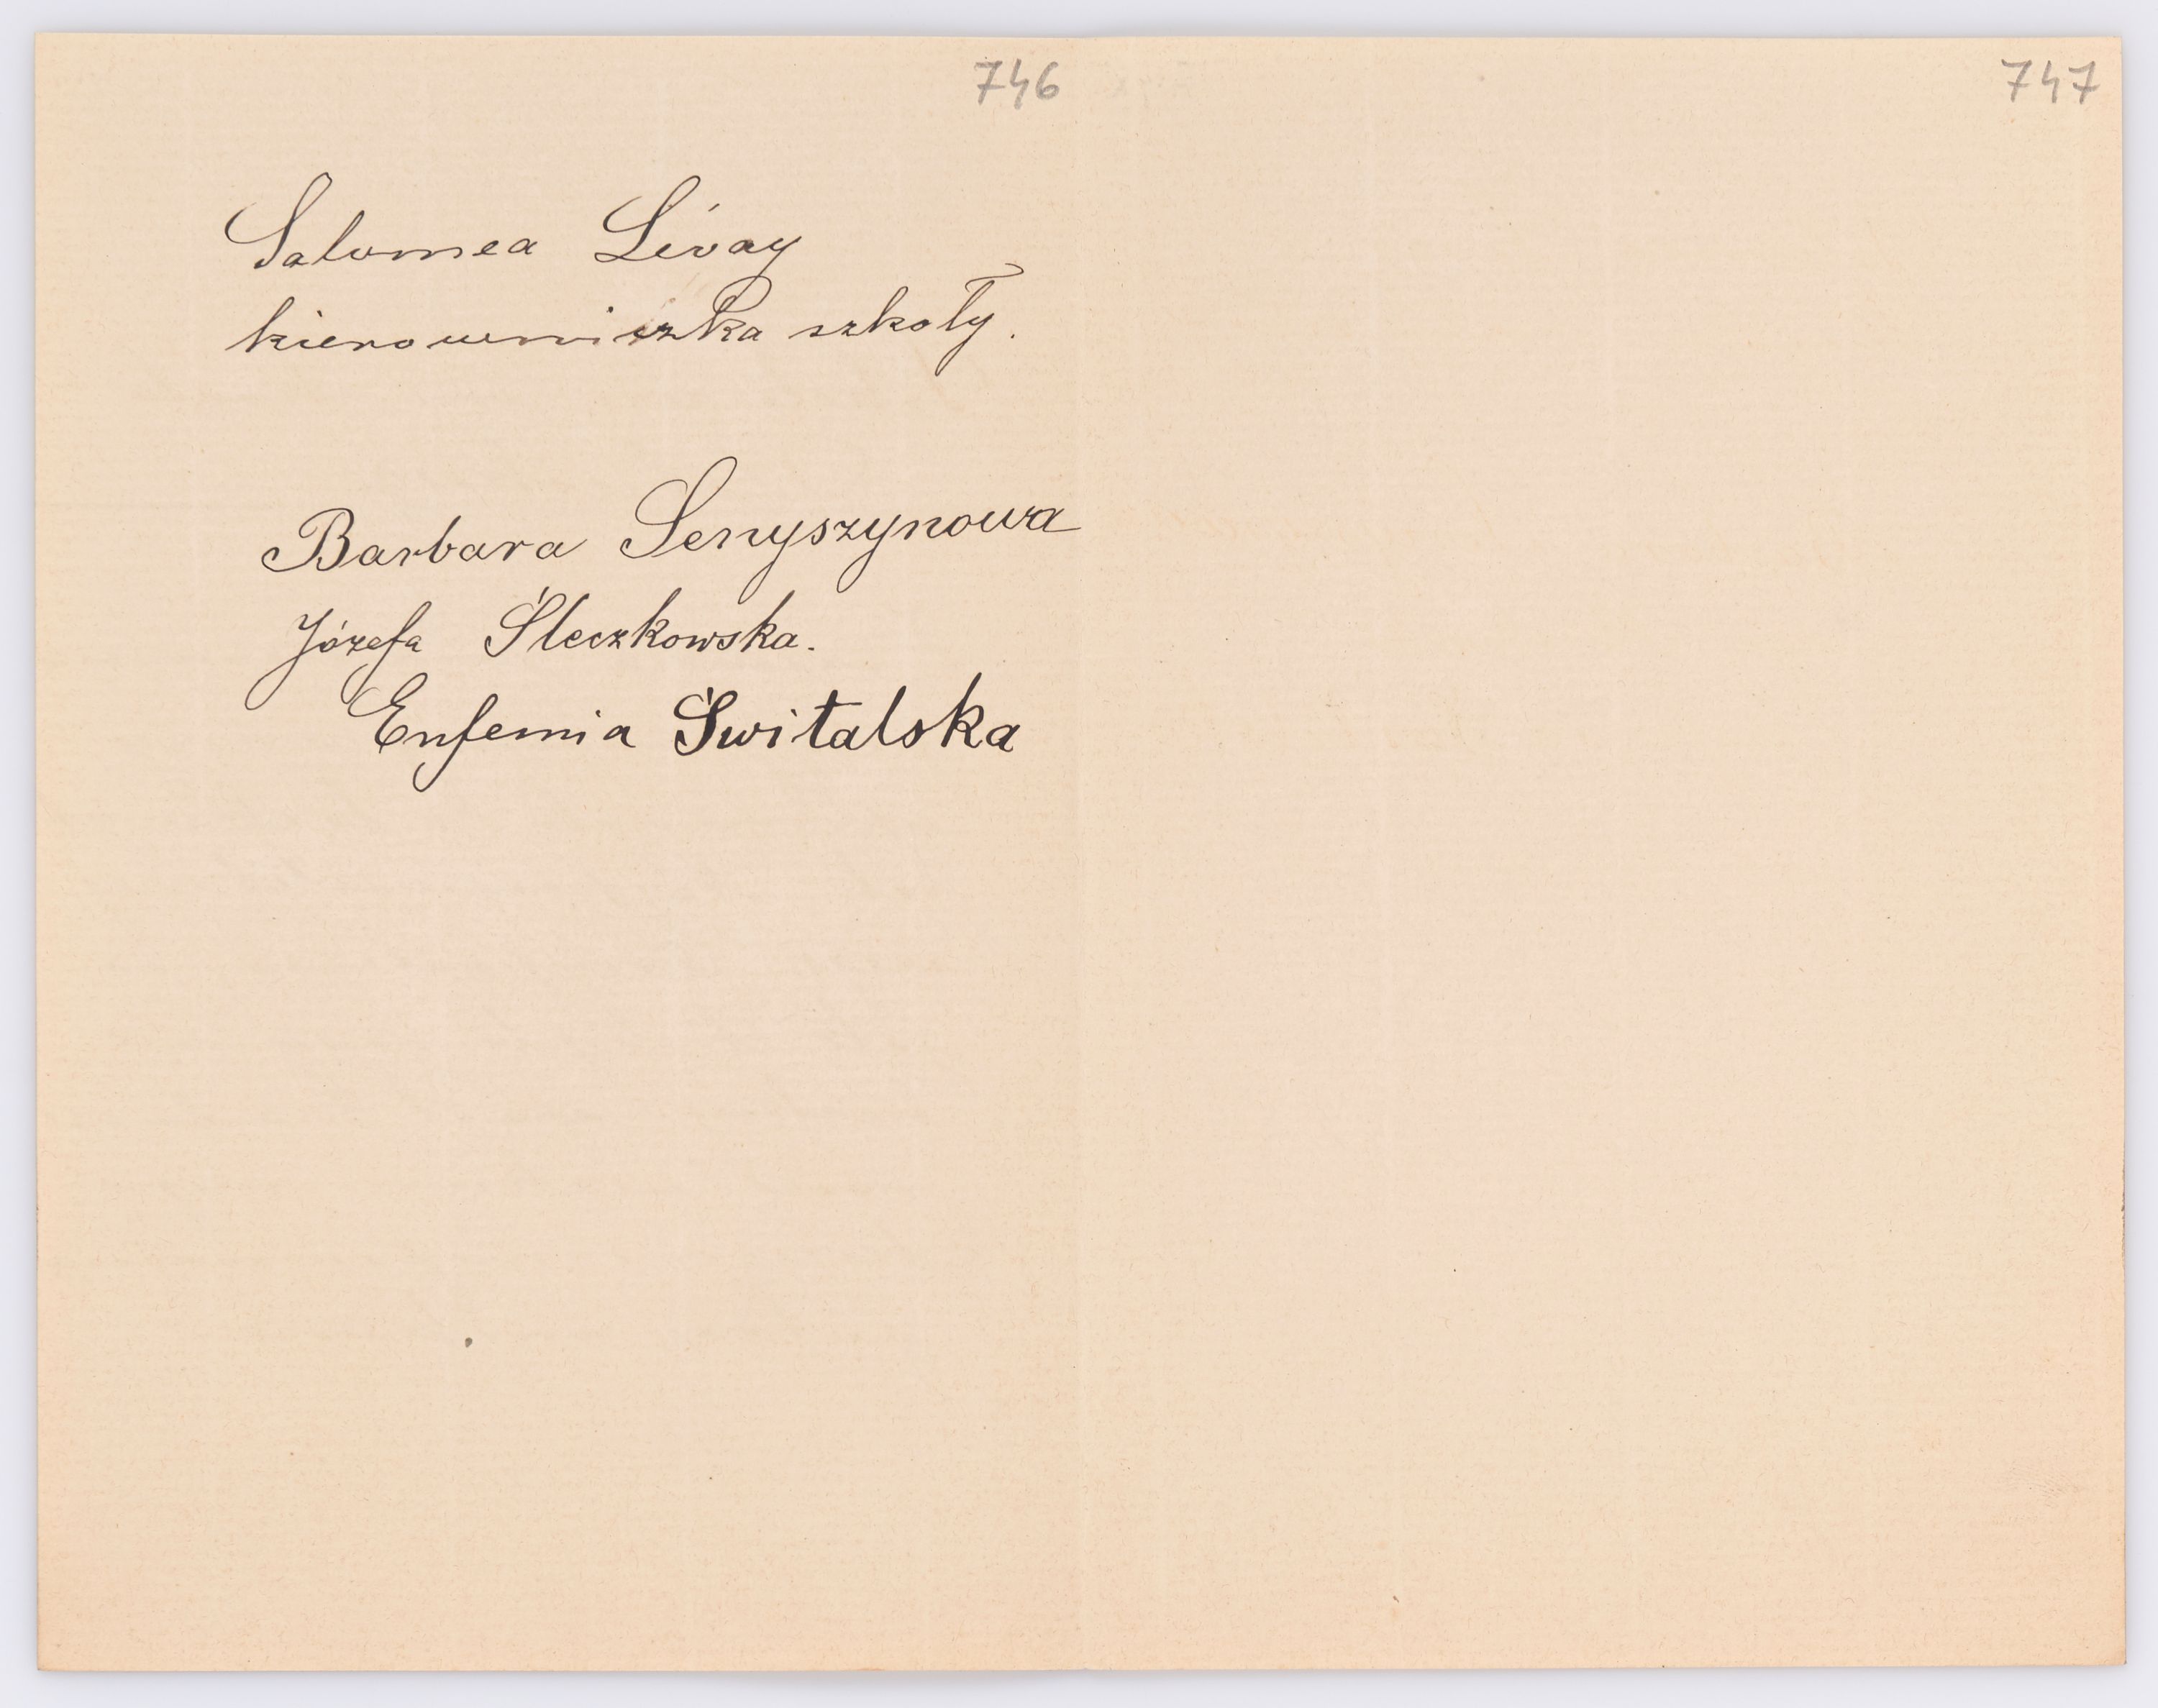 746
747
Salomea Livay
kierowniczka szkoły.
Barbara Senyszynowa
Józefa Śleczkowska.
Eufemia Świtalska